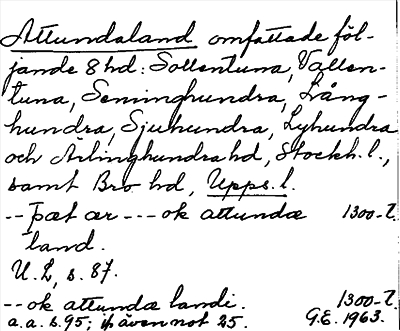 Attundaland omfattade föl-
jande 8 hd: Sollentuna, Vallen-
tuna, Seminghundra, Lång-
hundra, Sjuhundra, Lyhundra
och Ärlinghundra hd, Stockh. l.,
samt Bro hd, Upps. l.
-- þæt ær --- ok attundæ 1300-t.
land.
U.L, s. 87.
-- ok attundæ landi. 1300-t.
a.a. s. 95; jfr även not 25. G.E. 1963.